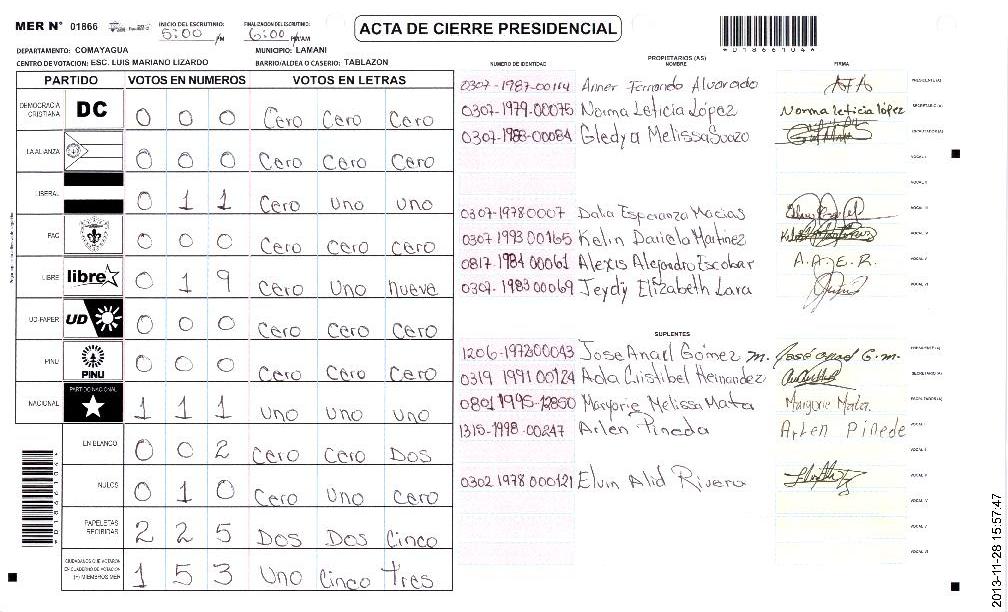 MER N° 01866 INICIO DEL ESCRUTINIO: 5:00 PM FINALIZACION DEL ESCRUTINIO: 6:00 PM/AM
ACTA DE CIERRE PRESIDENCIAL
DEPARTAMENTO: COMAYAGUA MUNICIPIO: LAMANI
CENTRO DE VOTACION: ESC. LUIS MARIANO LIZARDO BARRIO/ALDEA O CASERIO: TABLAZON
PARTIDO VOTOS EN NUMEROS VOTOS EN LETRAS
DEMOCRACIA CRISTIANA DC 0 0 0 Cero Cero Cero
LA ALIANZA 0 0 0 Cero Cero Cero
LIBERAL 0 1 1 Cero Uno Uno
PAC 0 0 0 Cero Cero Cero
LIBRE libre 0 1 9 Cero Uno nueve
UD-FAPER UD 0 0 0 Cero Cero Cero
PINU PINU 0 0 0 Cero Cero Cero
NACIONAL PARTIDO NACIONAL 1 1 1 Uno Uno Uno
EN BLANCO 0 0 2 Cero Cero Dos
NULOS 0 1 0 Cero Uno Cero
PAPELETAS RECIBIDAS 2 2 5 Dos Dos Cinco
CIUDADANOS QUE VOTARON EN CUADERNO DE VOTACION (+) MIEMBROS MER 1 5 3 Uno Cinco Tres
PROPIETARIOS (AS)
NUMERO DE IDENTIDAD NOMBRE FIRMA
0307-1987-00114 Fernando Alvarado PRESIDENTE(A)
0307-1979-00075 Norma Leticia López Norma leticia lópez SECRETARIO(A)
0307-1988-00084 Gledya Melissa Suazo ESCRUTADOR(A)
VOCAL I
VOCAL II
0307-19780007 Dalia Esperanza Macias VOCAL III
0307 1993 00165 Kelin Dariela Martinez VOCAL IV
0817-1984 00061 Alexis Alejandro Escobar A.A.E.R. VOCAL V
0307-1983 00069 Jeydy Elizabeth Lara VOCAL VI
SUPLENTES
1206-197200043 Jose Anael Gómez M. José G.M. PRESIDENTE(A)
0319 1991 00124 Ada Cristibel Hernandez SECRETARIO(A)
0801 1995-12850 Maryorie Melissa Mata Maryorie Mata. ESCRUTADOR(A)
1315-1998-00247 Arlen Pineda Arlen Pinede VOCAL I
VOCAL II
0302 1978 000121 Elvin Alid Rivera VOCAL III
VOCAL IV
VOCAL V
VOCAL VI
2013-11-28 15:57:47